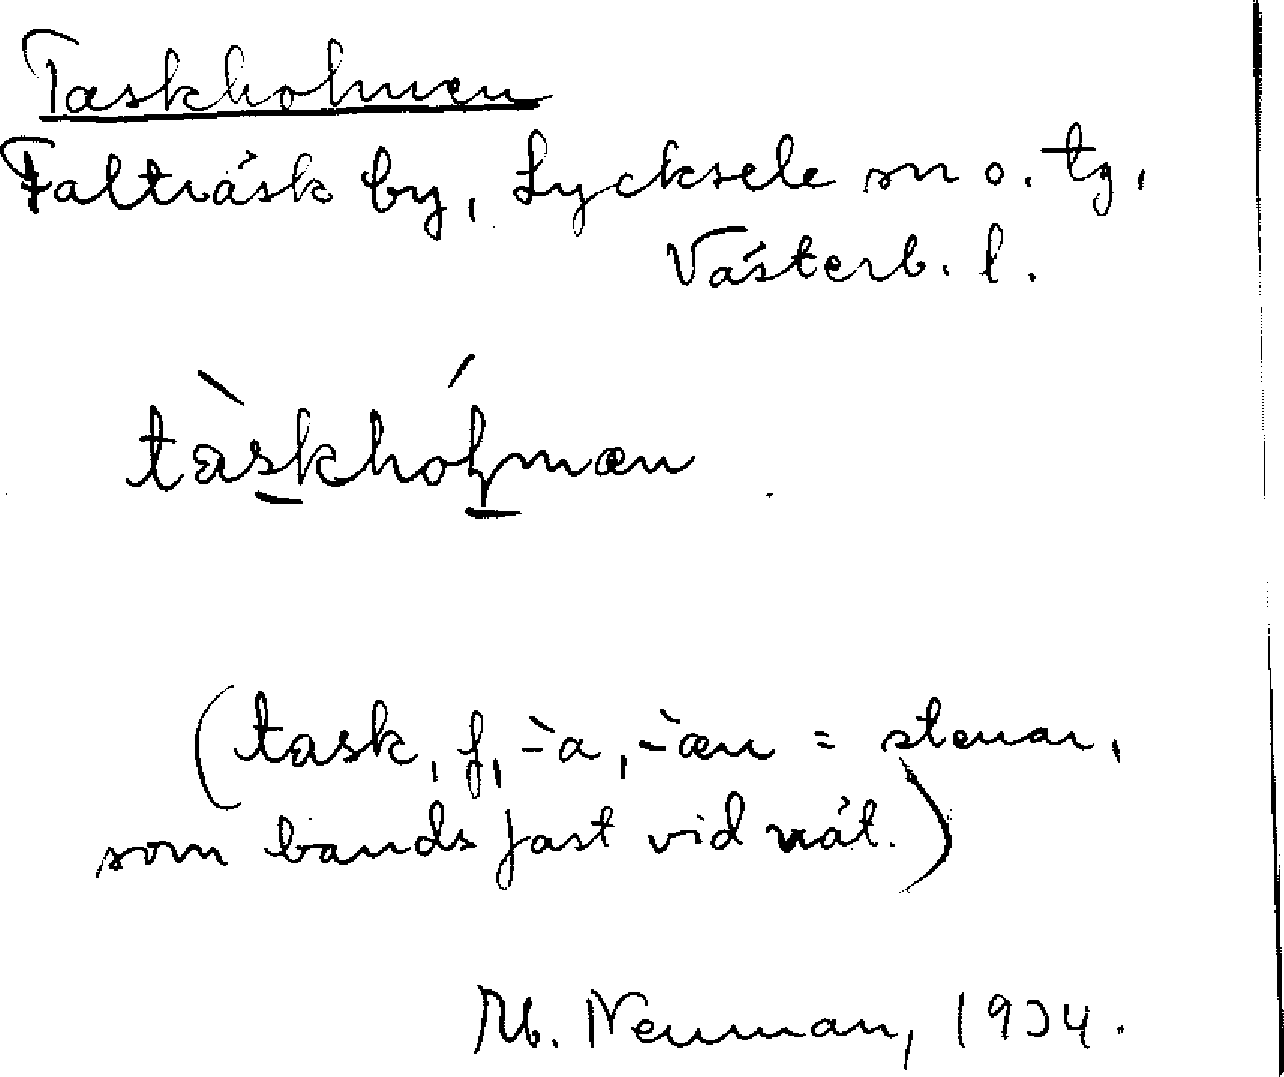 Taskholmen
Falträsk by, Lycksele sn o. tg,
Västerb. l.
tàskhólmæn
(task, f, -̀a, -̀æn = stenar,
som bands fast vid nät.)
Neuman, 1934.